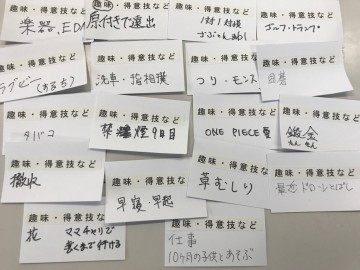 趣味・得意技など
楽器、EDM
趣味・得意技など
原付きで遠出
趣味・得意技など
1対1対談
趣味・得意技など
ゴルフ・トランプ
趣味・得意技など
ラグビー(するち)
趣味・得意技など
洗車・指相撲
趣味・得意技など
つり・モンス
趣味・得意技など
趣味・得意技など
タバコ
趣味・得意技など
禁煙9日目
趣味・得意技など
ONE PIECE
趣味・得意技など
趣味・得意技など
徹収
趣味・得意技など
早寝・早起
趣味・得意技など
草むしり
趣味・得意技など
最近ドローンとばし
趣味・得意技など
花 ママチャリで
遠くまで行ける
趣味・得意技など
仕事
10ヶ月の子供とあそぶ